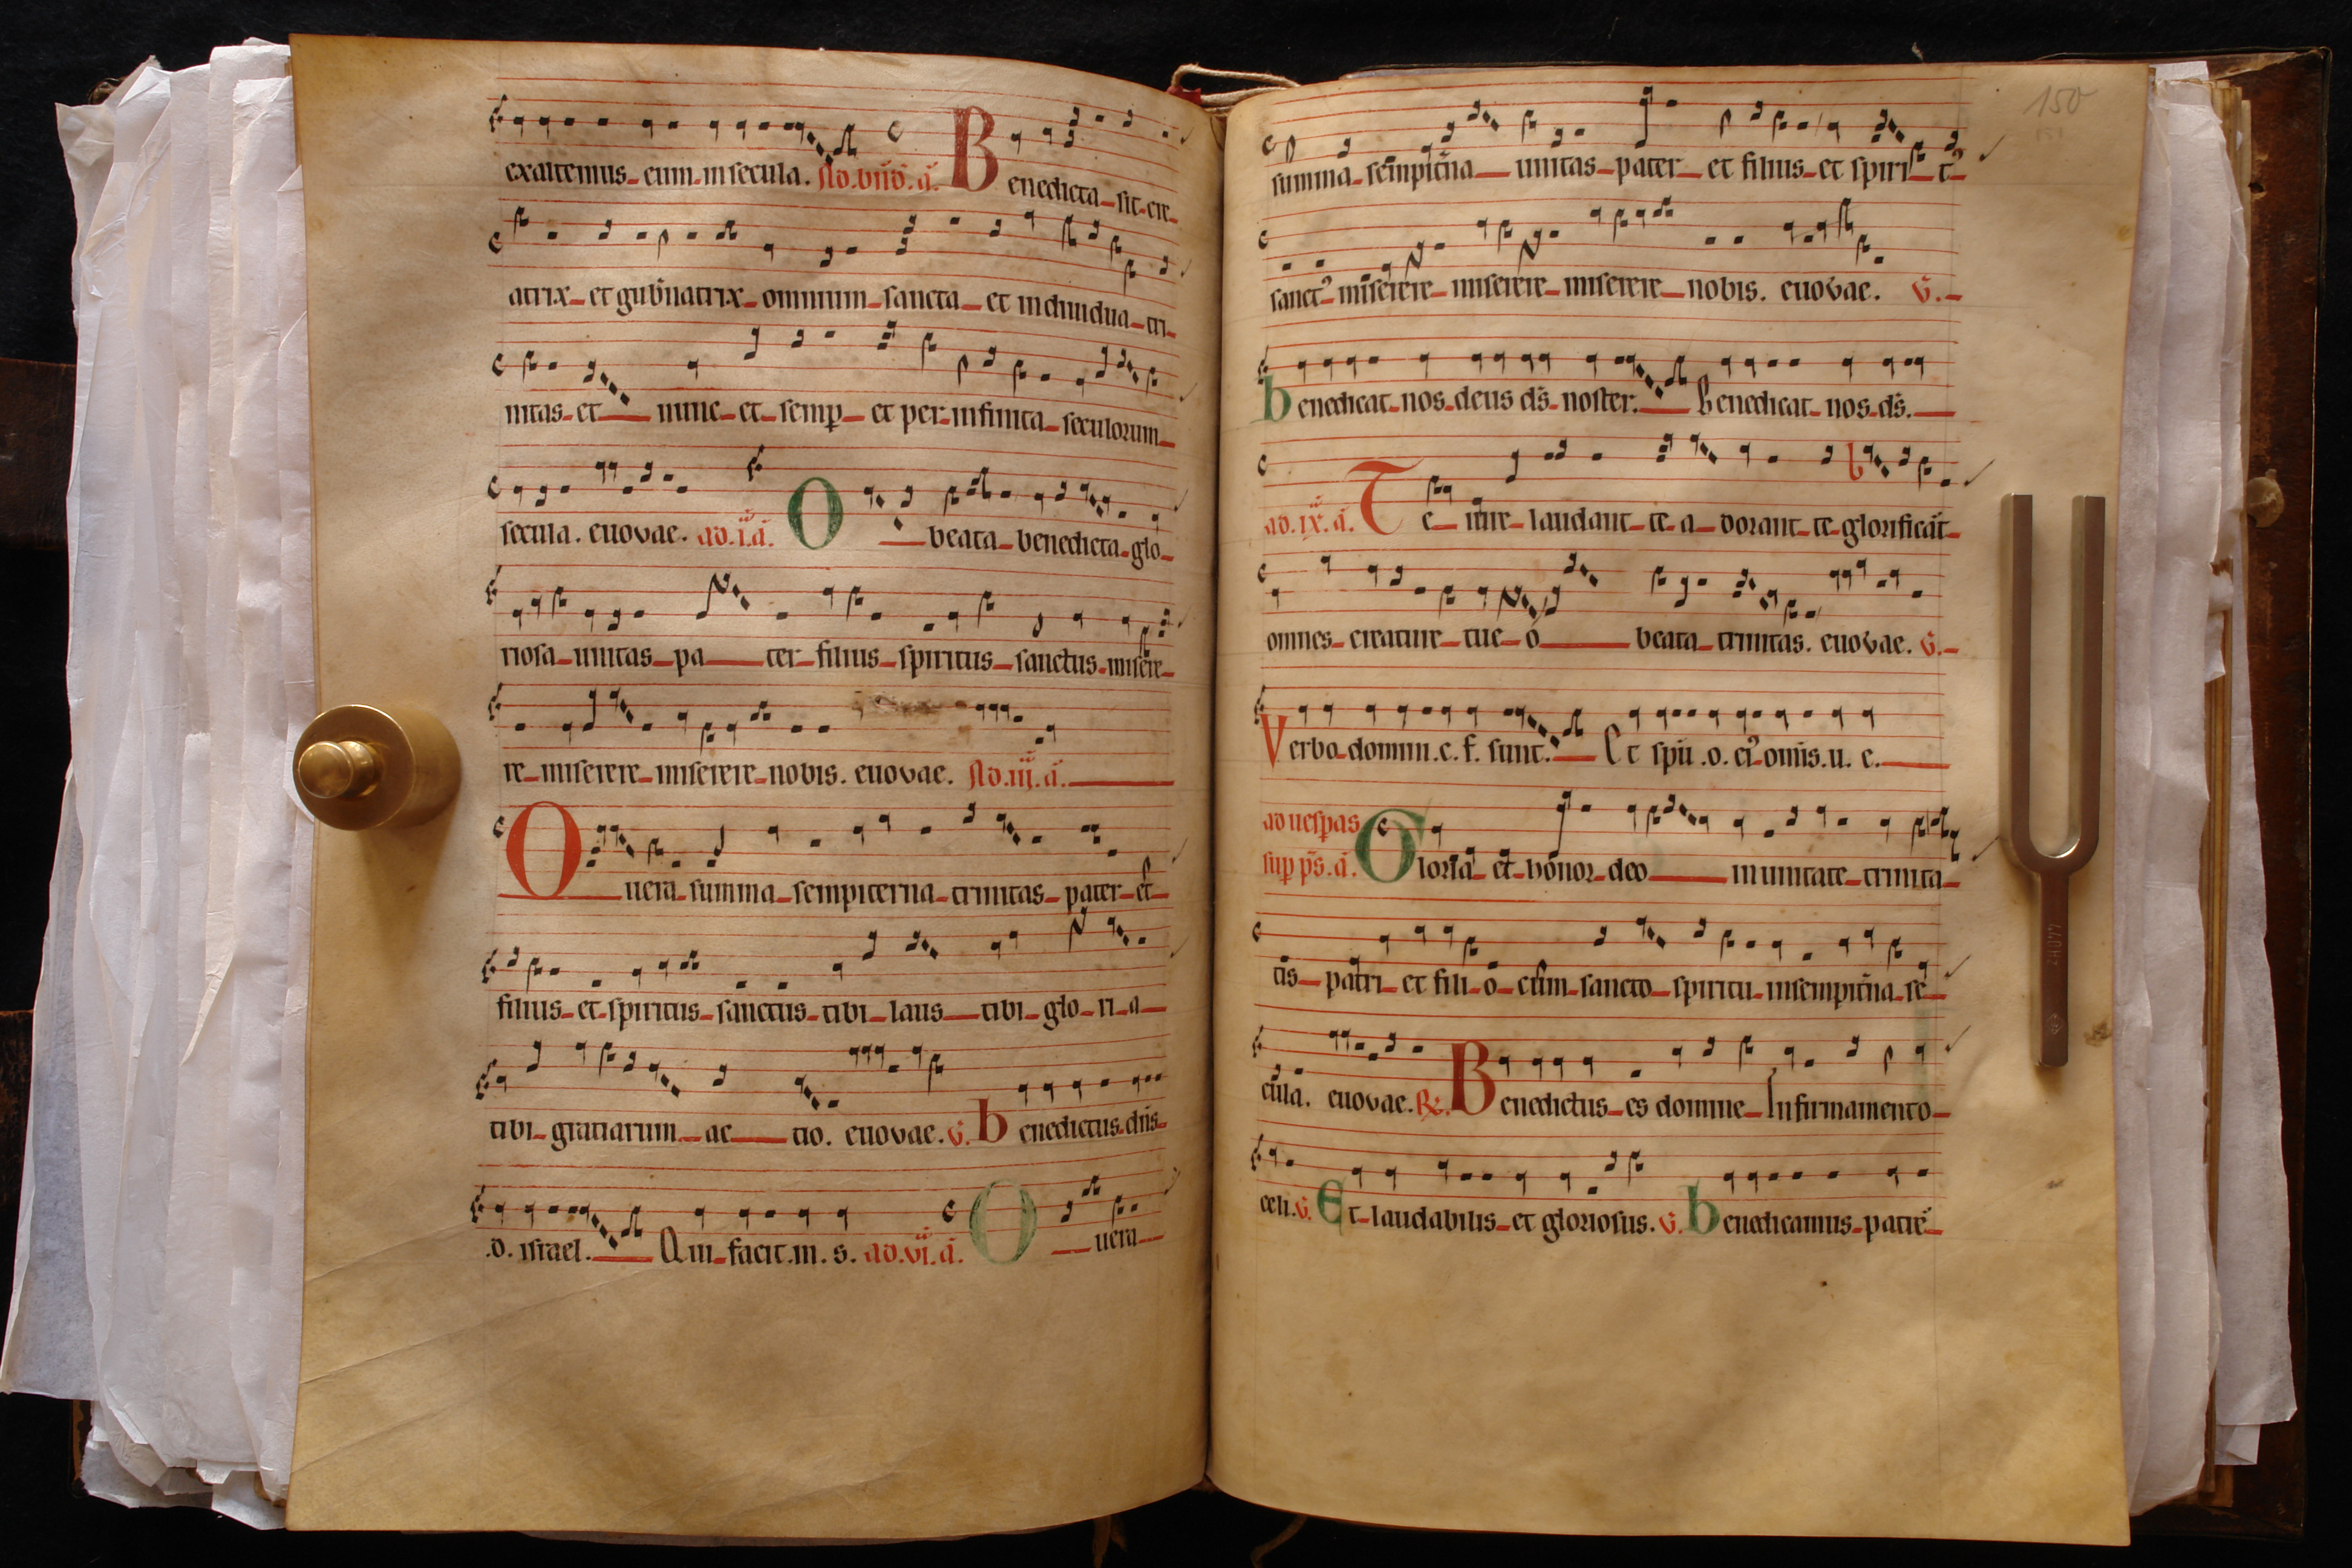 exaltemus eum in secula. Ad. bñd. ã. Benedicta sit cre
atrix et gub̃natrix omnium sancta et indiuidua tri
nitas et nunc et semp et per infinita seculorum
secula. euovae. ad. i. ã. O beata benedicta glo
riosa unitas pa ter filius spiritus sanctus misere
re miserere miserere nobis. euovae. Ad. iij. ã.
O uera summa sempiterna trinitas pater et
filius et spiritus sanctus tibi laus tibi glo ri a
tibi gratiarum ac tio. euovae. V. benedictus dñs
.d. israel. Qui facit. m. s. ad. vi. ã. O uera
150
summa sempit̃na unitas pater et filius et spiri t
sanct miserere miserere miserere nobis. euovae. V.
benedicat nos deus ds̃ noster. Benedicat nos ds̃.
ad. ix. ã. Te iure laudant te a dorant te glorificãt
omnes creature tue o beata trinitas. euovae. V.
Verbo domini. c. f. sunt. Et spũ .o. ei omĩs. u. e.
ad uesp̃as
sup ps̃. ã. Gloria et honor deo in unitate trinita
tis patri et fili o cum sancto spiritu in sempit̃na se
cula. euovae. R. Benedictus es domine In firmamento
celi. V. Et laudabilis et gloriosus. V. benedicamus patrẽ